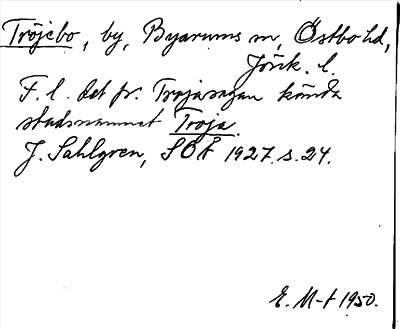 Tröjebo, by, Byarums sn, Östbo hd,
Jönk. l.
F. l. det fr. Trojasagan kända
stadsnamnet Troja.
J. Sahlgren, SOÅ 1927. s. 24.
E. M-t 1950.